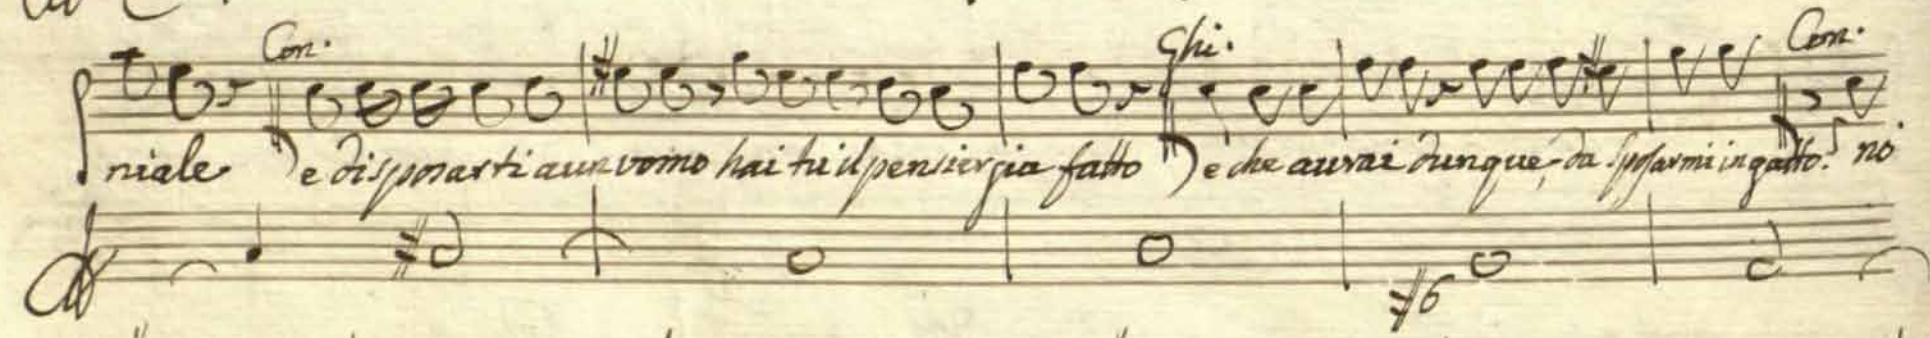 Con. Ghi. Con.
niale e disposarti a un uomo hai tu il pensier gia fatto e che aurai dunque da sposarmi in gatto? no
#6